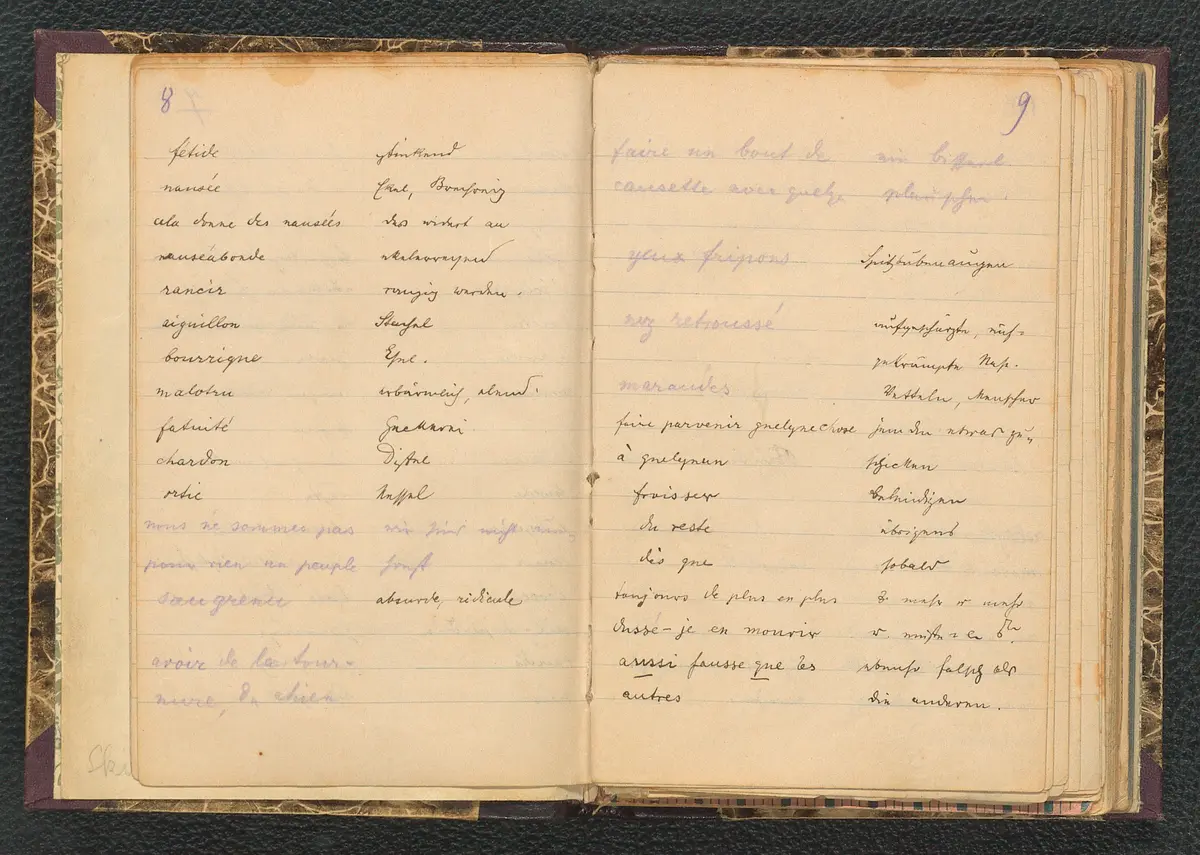 8
fétide stinkend
nausée Ekel, Brechreiz
cela donne des nausées das widert an
nauséabonde ekelerregend
rancir ranzig werden.
aiguillon Stachel
bourrique Esel.
malotru erbärmlich, elend.
fatuité
chardon Distel
ortie Nessel
nous ne sommes pas wir sind nicht
pour rien un peuple
saugrenu absurde, ridicule
avoir de la tour-
nure, du chien
9
faire un bout de ein bisserl
causette avec quelq. plauschen
yeux fripons Spitzbubenaugen
nez retroussé aufgeschürzte, auf-
gekrümpte Nase.
maraudes Vetteln, Menscher
faire parvenir quelque chose jemdn etwas zu-
à quelqu'un schicken
froisser beleidigen
du reste übrigens
dès que sobald
toujours de plus en plus mehr u mehr
dussé-je en mourir
aussi fausse que les ebenso falsch als
autres die anderen.